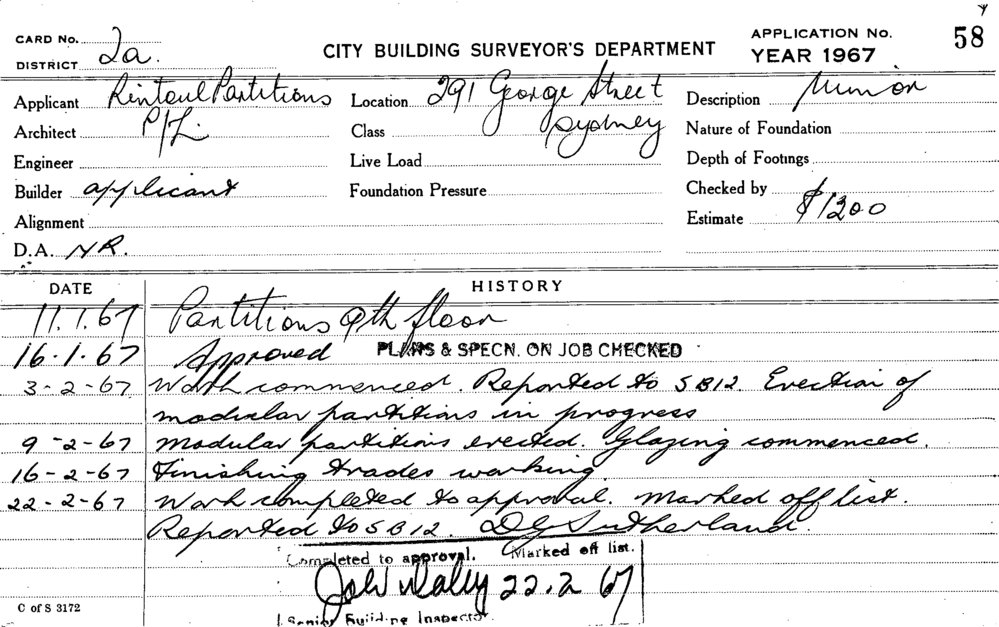 CARD No.
DISTRICT 2a.
CITY BUILDING SURVEYOR'S DEPARTMENT
APPLICATION No. 58
YEAR 1967
Applicant Rinteul Partitions
Location 291 George Street
Description Minor
Architect P/L.
Class Sydney
Nature of Foundation
Engineer
Live Load
Depth of Footings
Builder applicant
Foundation Pressure
Checked by
Alignment
Estimate $1200
D.A. NR.
DATE HISTORY
11.1.67 Partitions 9th floor
16.1.67 Approved PLANS & SPECN. ON JOB CHECKED
3-2-67 Work commenced. Reported to SB12. Erection of
modular partitions in progress
9-2-67 Modular partitions erected. Glazing commenced.
16-2-67 Finishing trades working
22-2-67 Work completed to approval. Marked off list.
Reported to SB12. DG Sutherland.
Completed to approval. Marked off list.
22.2.67
Senior Building Inspector
C of S 3172